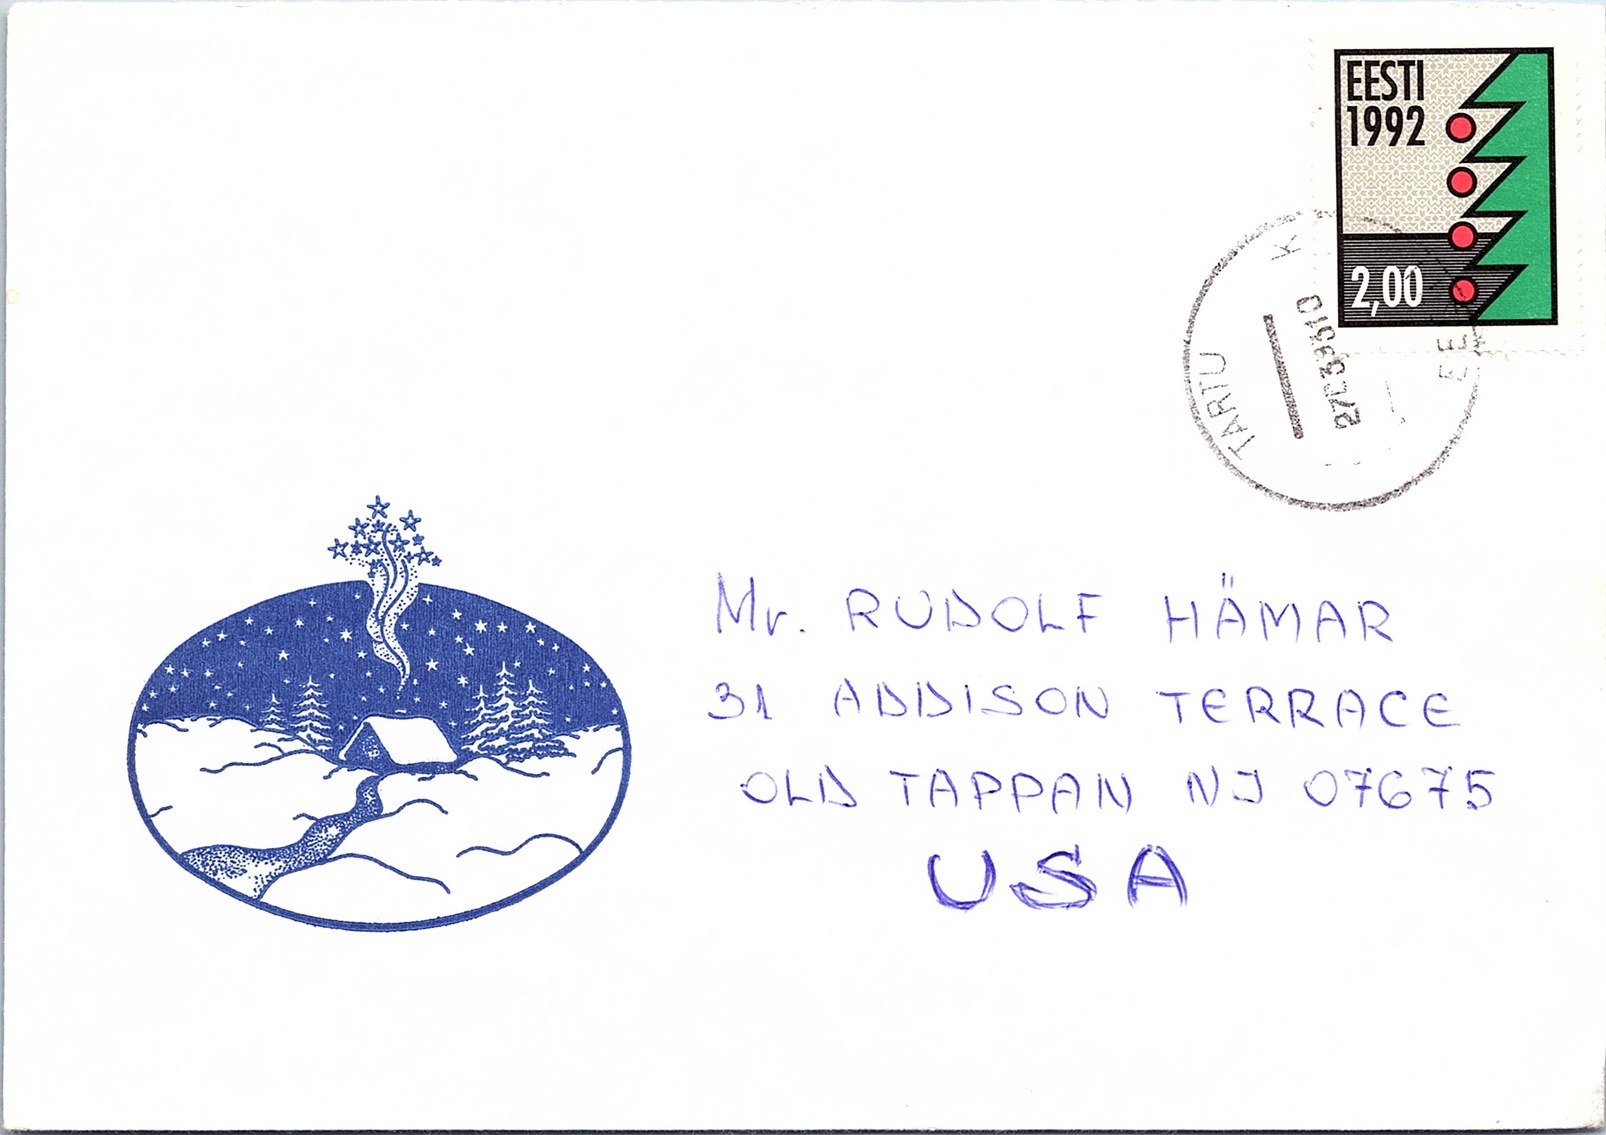 EESTI
1992
2,00
TARTU
K
EE
Mr. RUDOLF HÄMAR
31 ADDISON TERRACE
OLD TAPPAN NJ 07675
USA